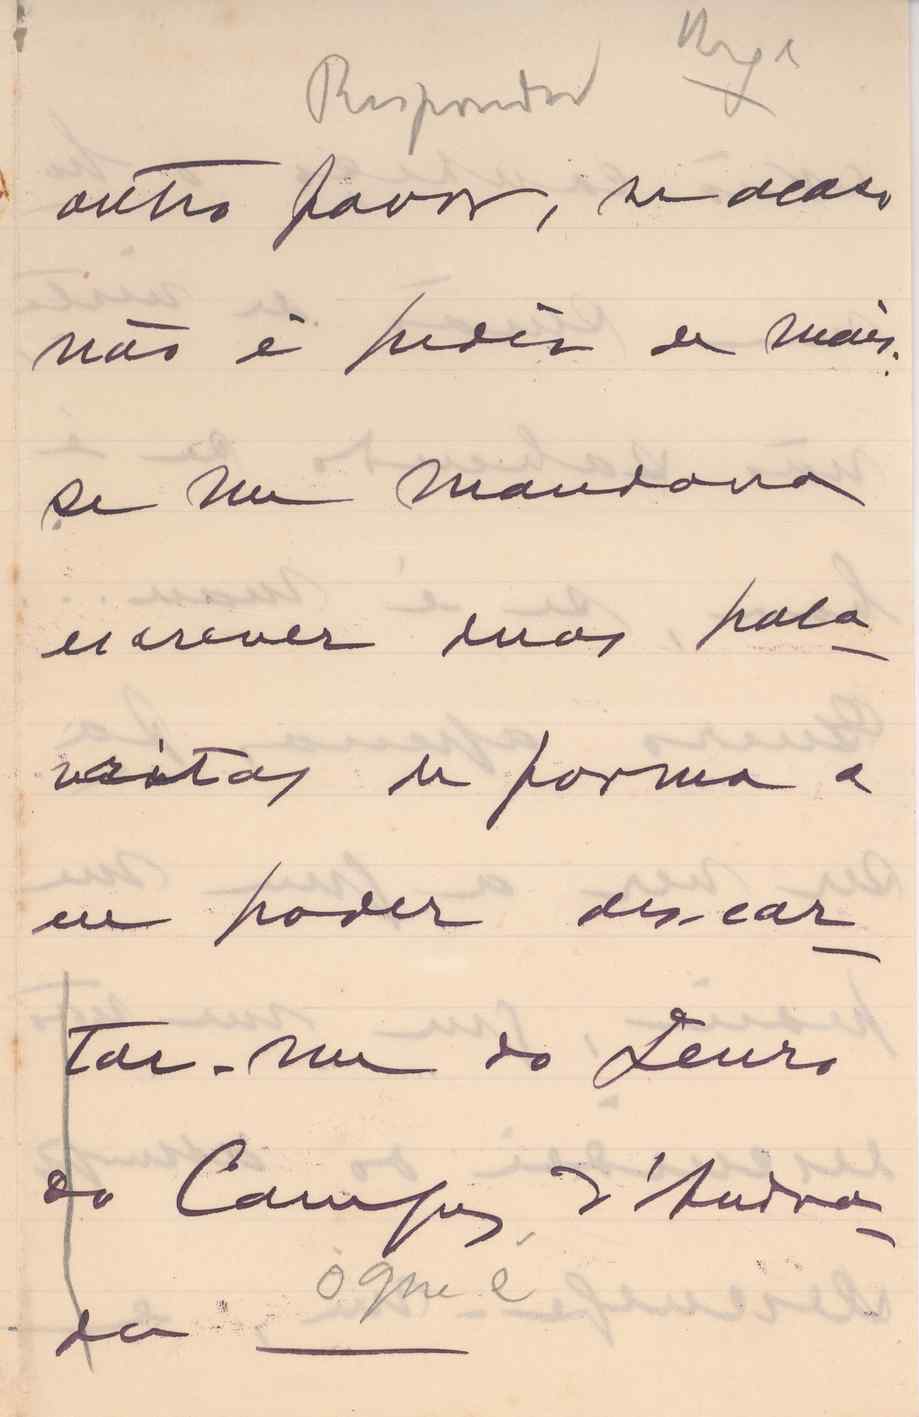 Responder Urge
outro favor, se acaso
não é pedir de mais:
se me mandava
escrever duas pala-
vritas de forma a
eu poder descar-
tar-me do Lauro
do Campos d'Andra-
da
o que é